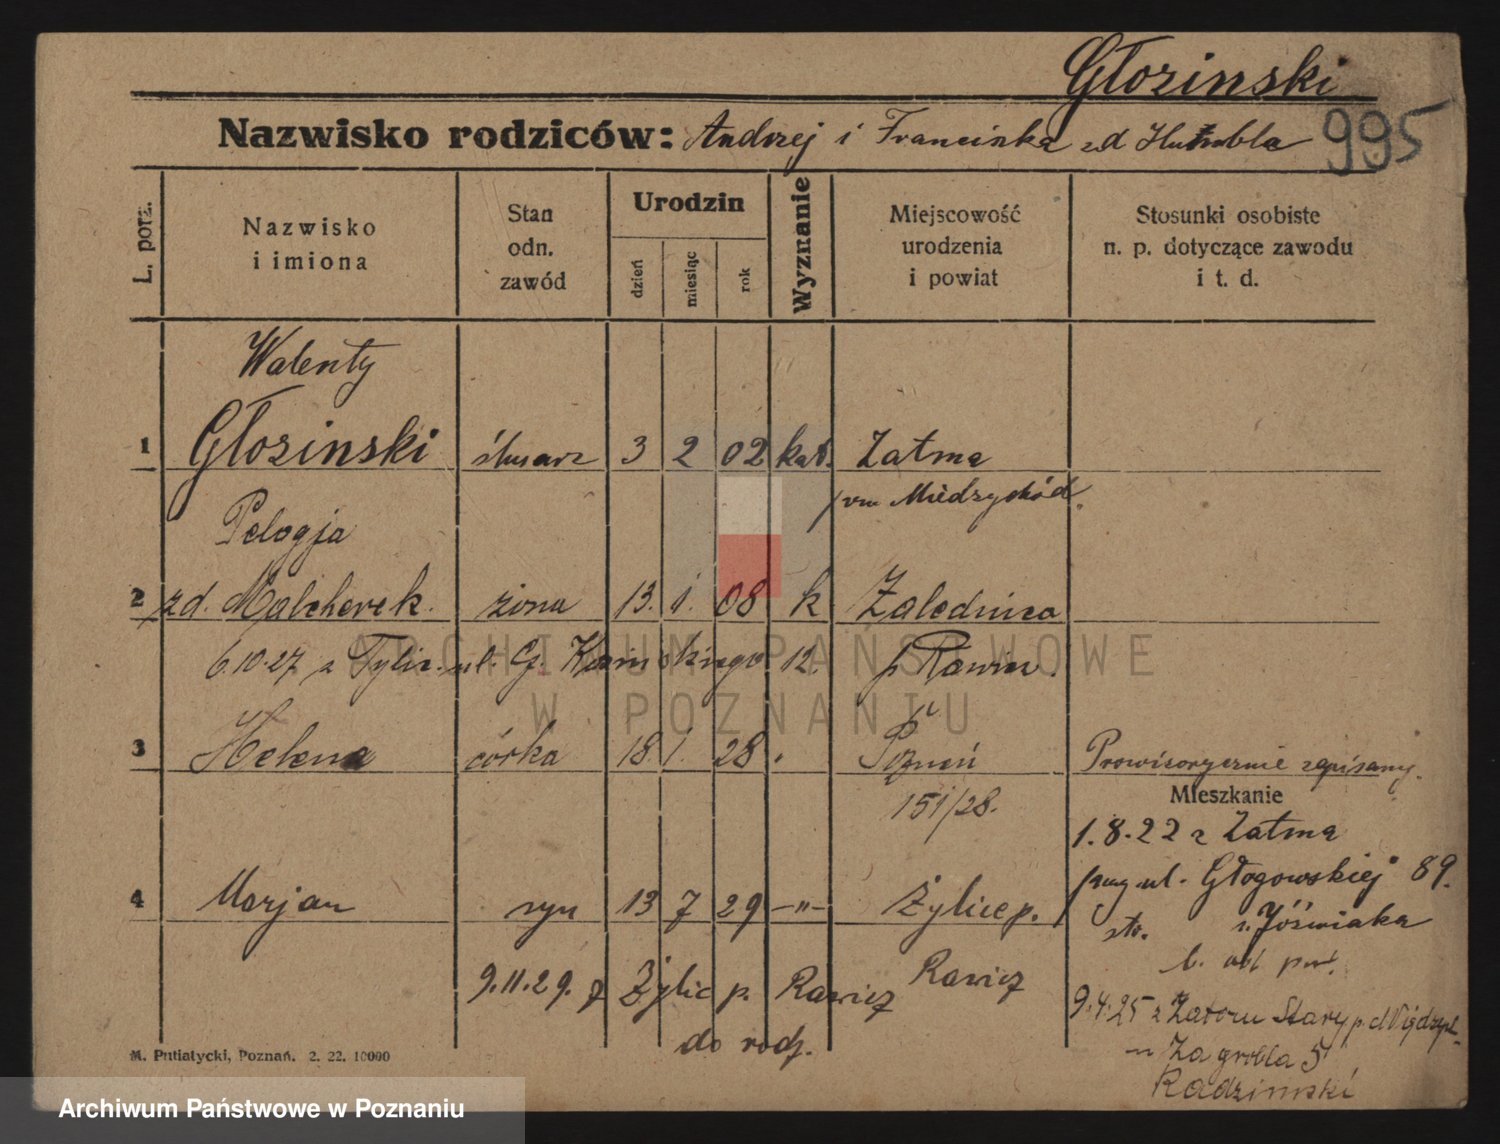 Głozinski
Nazwisko rodziców: Andrzej i Franciszka zd
995
L. porz.
Nazwisko i imiona
Stan odn. zawód
Urodzin
dzień
miesiąc
rok
Wyznanie
Miejscowość urodzenia i powiat
Stosunki osobiste n. p. dotyczące zawodu i t. d.
Walenty
1 Głozinski ślusarz 3 2 02 kat. Zatma
Międzychód.
Pelagja
2 zd. Malcherek. żona 13. 1. 08 k Zalednica
6.10.27 z Żylic. ul. G. 12. p Rawicz
3 Helena córka 18. 1. 28 " Poznań Prowizorycznie zapisany.
151/28.
Mieszkanie
1.8.22 z Zatma
ul. Głogowskiej 89.
4 Marjan syn 13 7 29 —"— Żylice p.
Rawicz
str. u. Jóźwiaka
9.11.29. z Żylic p. Rawicz
do rodz.
9.4.25 z Zatoru Stary p.
Zagrobla 5
Radzimski
M. Putiatycki, Poznań. 2. 22. 10000
ARCHIWUM PAŃSTWOWE
W POZNANIU
Archiwum Państwowe w Poznaniu